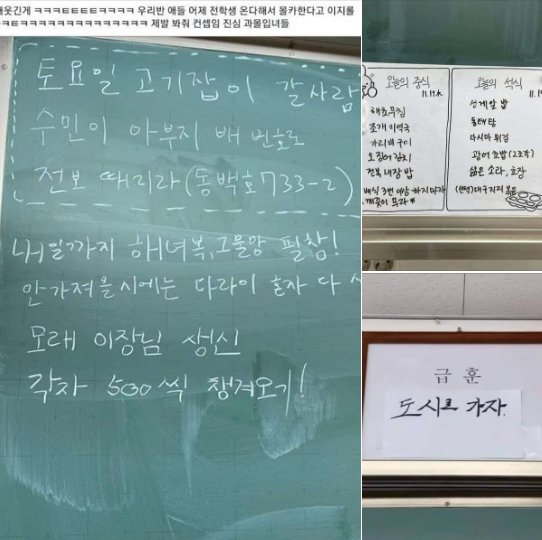 개웃긴게 ㅋㅋㅋㅌㅌㅌㅌㅋㅋㅋㅋ 우리반 애들 어제 전학생 온다해서 몰카한다고 이지롤
ㅋㅋㅌㅋㅋㅋㅋㅋㅋㅋㅋㅋㅋㅋㅋㅋㅋㅋ 제발 봐줘 컨셉임 진심 과몰입녀들
토요일 고기잡이 갈사람
수민이 아부지 배 번호로
전보 때리라(동백호733-2)
내일까지 해녀복,고물망 필참!
안가져올시에는 다라이 혼자 다
모래 이장님 생신
각자 500씩 챙겨오기!
오늘의 중식
11.19
해초무침
조개미역국
가리비구이
오징어김치
전복내장밥
오늘의 석식
11.19
성게알밥
동태탕
다시마튀김
광어초밥(2조각)
삶은 소라, 초장
급훈
도시로 가자.